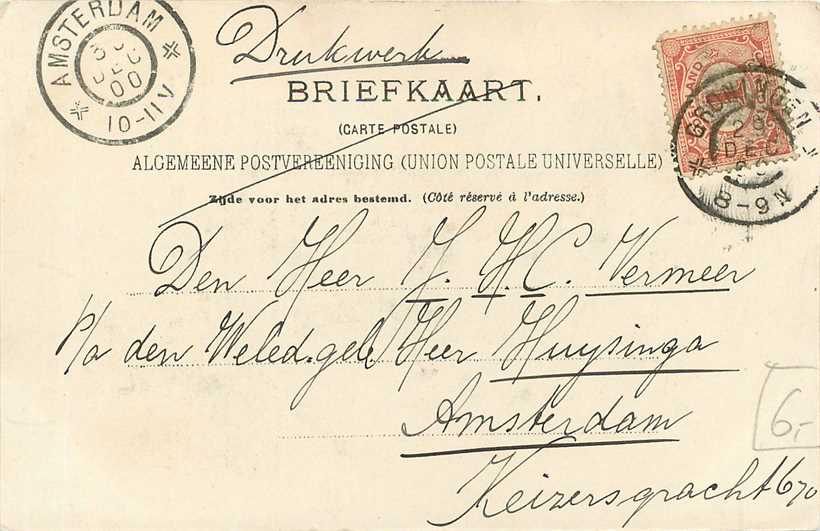 AMSTERDAM
30
DEC
00
10-11V
Drukwerk
BRIEFKAART.
(CARTE POSTALE)
ALGEMEENE POSTVEREENIGING (UNION POSTALE UNIVERSELLE)
Zijde voor het adres bestemd. (Côté réservé à l'adresse.)
GRONINGEN
29
DEC
8-9N
Den Heer J. H. C. Vermeer
p/a den Weled.geb. Heer Huysinga
Amsterdam
Keizersgracht 670
6,-